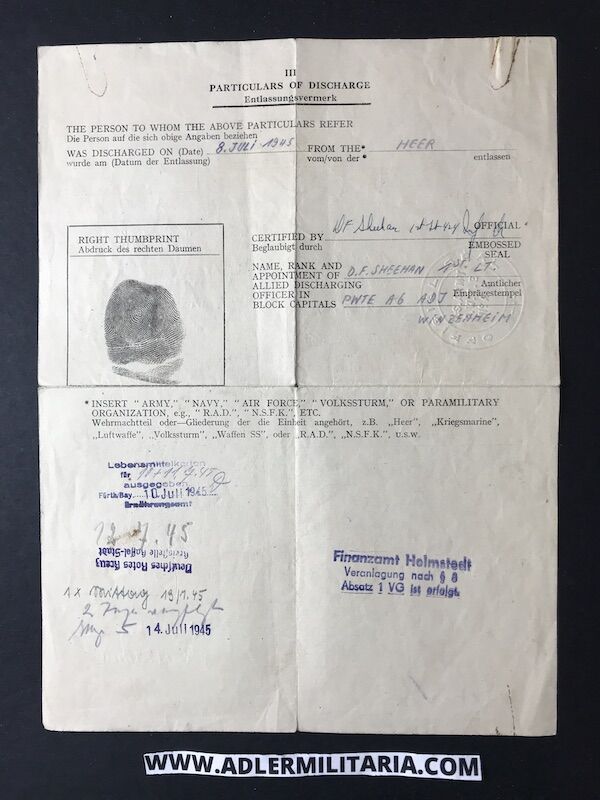 III
PARTICULARS OF DISCHARGE
Entlassungsvermerk
THE PERSON TO WHOM THE ABOVE PARTICULARS REFER
Die Person auf die sich obige Angaben beziehen
WAS DISCHARGED ON (Date) 8. JULI 1945 FROM THE* HEER
wurde am (Datum der Entlassung) vom/von der * entlassen
RIGHT THUMBPRINT
Abdruck des rechten Daumen
CERTIFIED BY DF Sheehan 1st Lt OFFICIAL *
Beglaubigt durch EMBOSSED
SEAL
NAME, RANK AND
APPOINTMENT OF D.F. SHEEHAN 1ST. LT.
ALLIED DISCHARGING Amtlicher
OFFICER IN PWTE A6 ADJ Einprägestempel
BLOCK CAPITALS WINZENHEIM
* INSERT "ARMY," "NAVY," "AIR FORCE," "VOLKSSTURM," OR PARAMILITARY
ORGANIZATION, e.g., "R.A.D.", "N.S.F.K.", ETC.
Wehrmachtteil oder—Gliederung der die Einheit angehört, z.B. „Heer", „Kriegsmarine",
„Luftwaffe", „Volkssturm", „Waffen SS", oder „R.A.D.", „N.S.F.K.", u.s.w.
Lebensmittelkarten
für 10+11.7.45
ausgegeben
Fürth/Bay. 10. Juli 1945
Ernährungsamt
12.7.45
Kreisstelle Kassel-Stadt
Deutsches Rotes Kreuz
1 x Mittag 13/7.45
2 Tage verpflegt
14. Juli 1945
Finanzamt Helmstedt
Veranlagung nach § 8
Absatz 1 VG ist erfolgt.
WWW.ADLERMILITARIA.COM